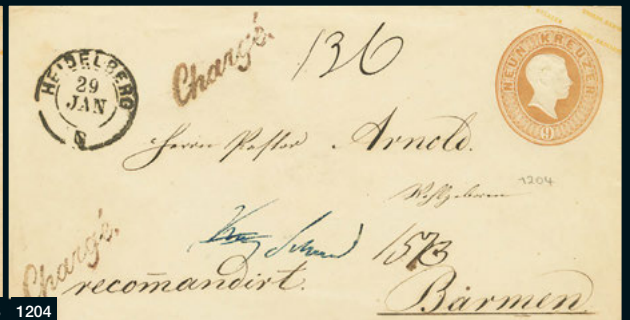 HEIDELBERG
29
JAN
Chargé.
136
NEUN KREUZER
9
Herrn Pastor Arnold.
Wohlgeboren
1204
Chargé.
1573
recom̄andirt.
Barmen
1204